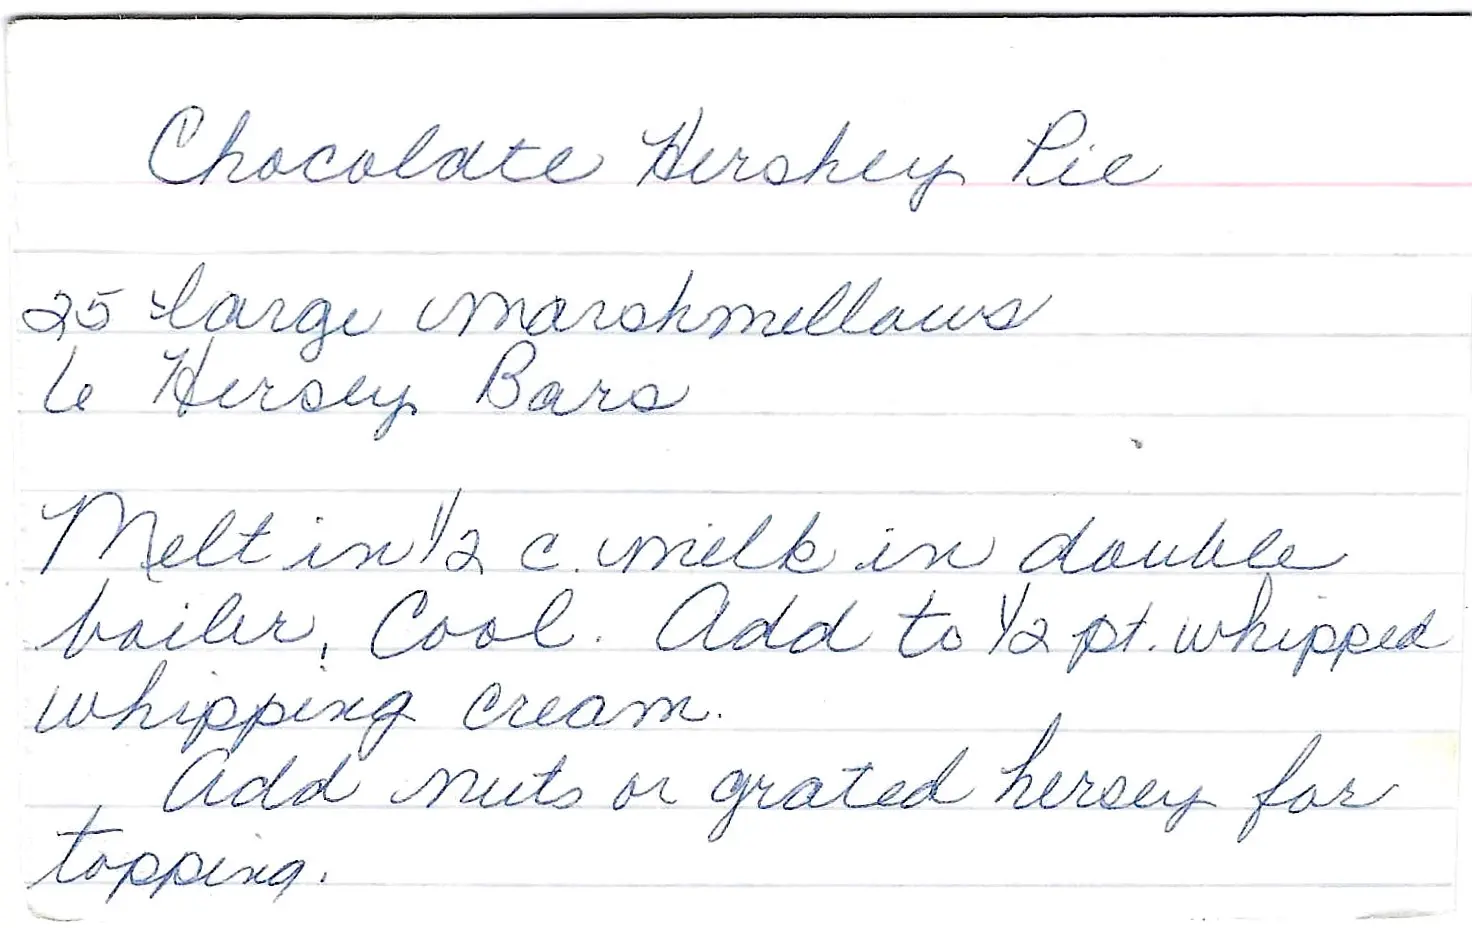 Chocolate Hershey Pie
25 large marshmellows
6 Hersey Bars
Melt in 1/2 c. milk in double
boiler, Cool. Add to 1/2 pt. whipped
whipping cream.
Add nuts or grated hersey for
topping.